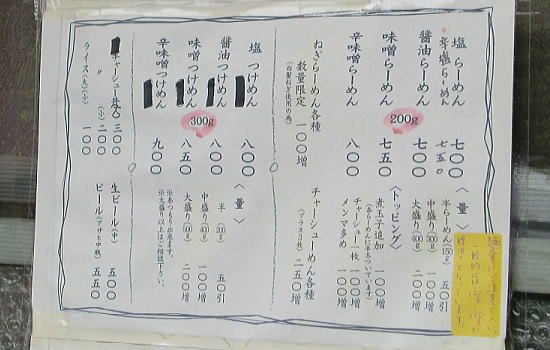 塩 らーめん 七〇〇
辛塩らーめん 七五〇
醤油らーめん 七〇〇
200g
味噌らーめん 七五〇
辛味噌らーめん 八〇〇
ねぎらーめん各種 一〇〇増
数量限定
(白髪ねぎ使用の為)
〈量〉
半らーめん(150g) 五〇引
中盛り(300g) 一〇〇増
大盛り(400g) 二〇〇増
〈トッピング〉
煮玉子追加 一〇〇増
(赤らーめんに半玉ついています)
チャーシュー一枚 一〇〇増
メンマ多め 一〇〇増
チャーシューめん各種 二五〇増
(プラス3枚)
塩 つけめん 八〇〇
醤油つけめん 八〇〇
300g
味噌つけめん 八五〇
辛味噌つけめん 九〇〇
〈量〉
半 (200g) 五〇引
中盛り(400g) 一〇〇増
大盛り(500g) 二〇〇増
※あつもり出来ます。
※大盛り以上はご相談下さい。
チャーシュー丼(大) 三〇〇
(小) 二〇〇
ライス(大)(小) 一〇〇
生ビール(中) 五〇〇
ビール(アサヒ中瓶) 五五〇